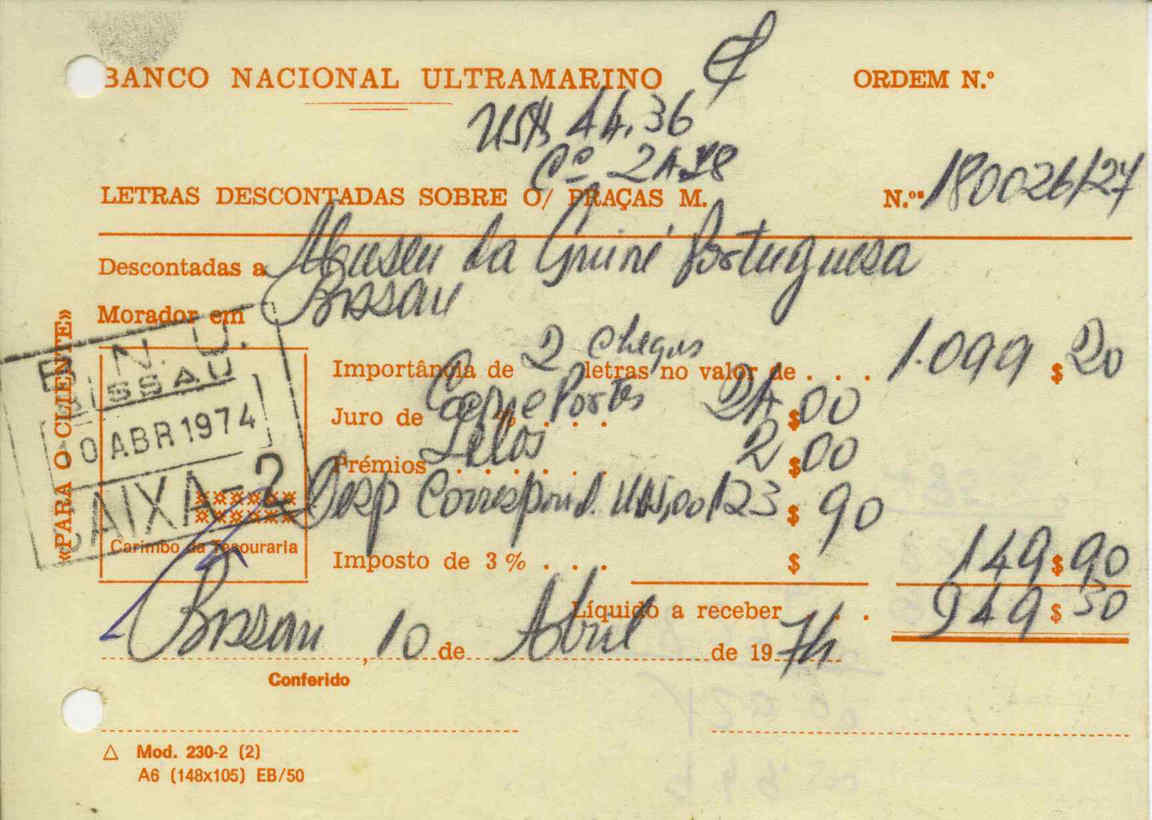 BANCO NACIONAL ULTRAMARINO
ORDEM N.º
US$ 44,36
Cº 24.78
LETRAS DESCONTADAS SOBRE O/ PRAÇAS M.
N.ºˢ 180026/27
Descontadas a Museu da Guiné Portuguesa
Morador em Bissau
Importância de 2 cheques letras no valor de . . . 1.099 $ 20
Juro de % . . . Portes 24 $ 00
Prémios . . . . . . . Selos 2 $ 00
Desp Correspond. 123 $ 90
Imposto de 3 % . . . $ 149 $ 90
Líquido a receber . . 949 $ 30
Bissau, 10 de Abril de 1974
Conferido
«PARA O CLIENTE»
B. N. U.
BISSAU
10 ABR 1974
CAIXA-2
Carimbo da Tesouraria
△ Mod. 230-2 (2)
A6 (148x105) EB/50